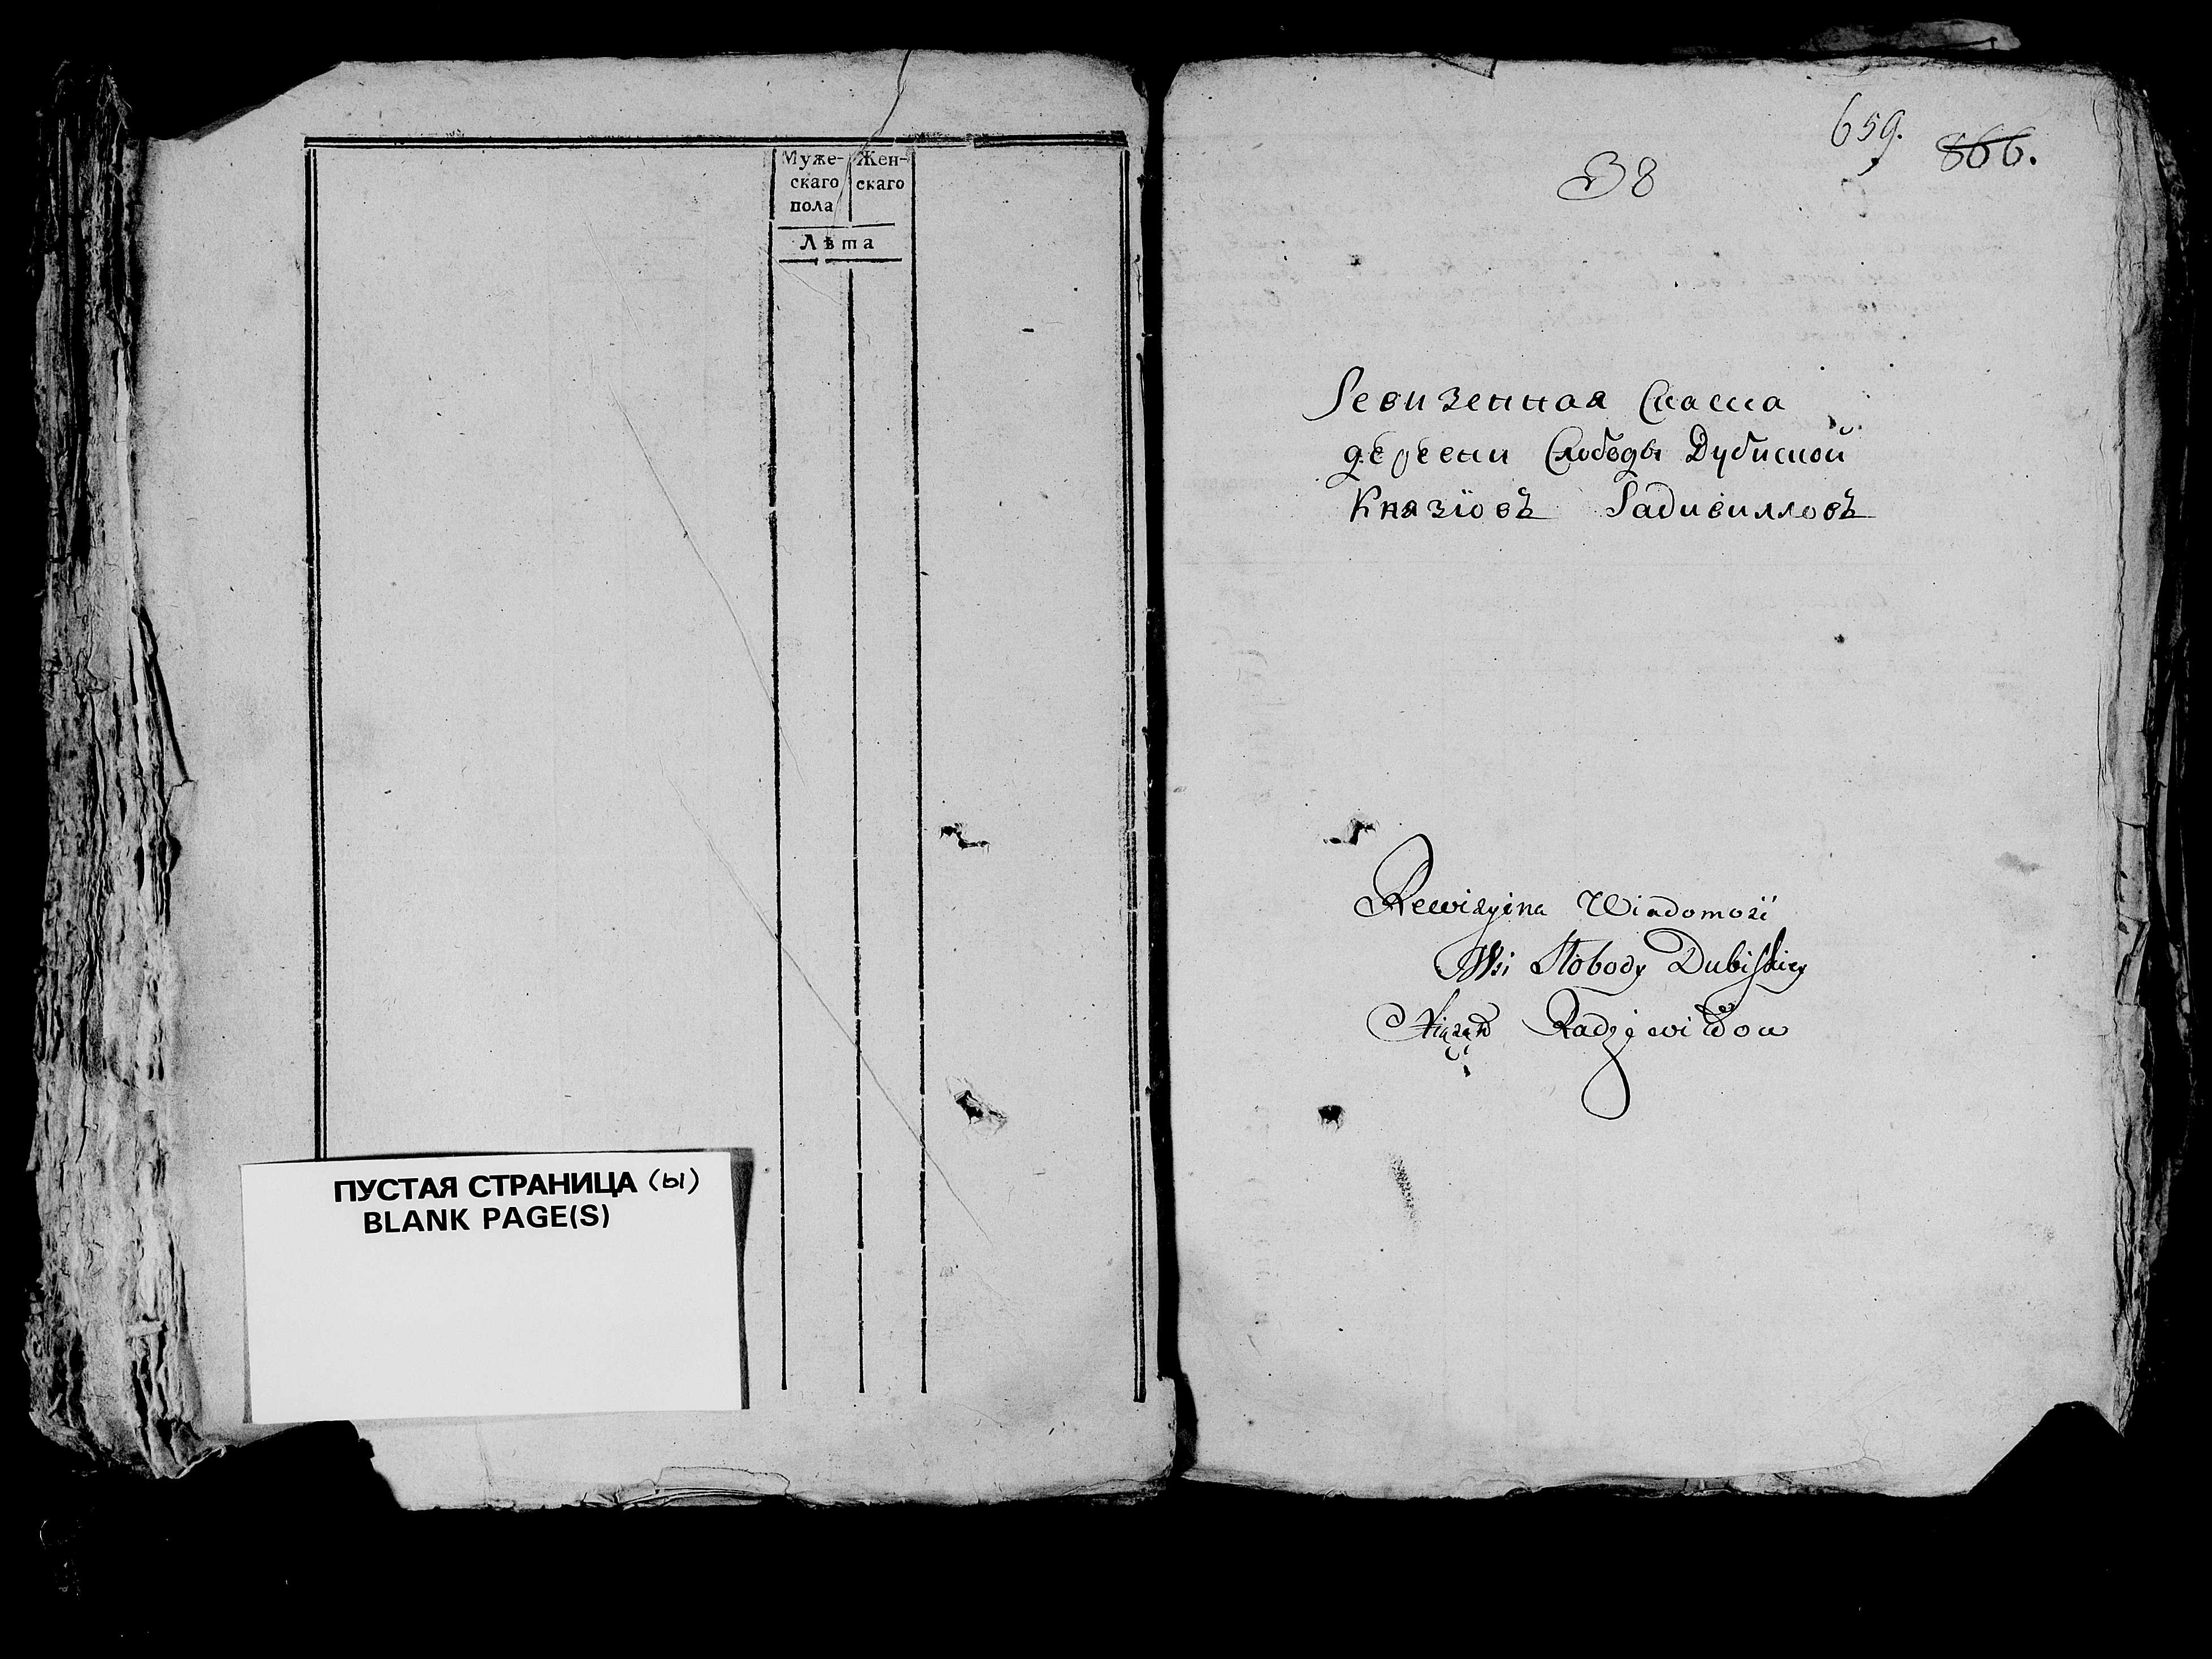 Муже- Жен-
скаго скаго
пола
Лѣта
ПУСТАЯ СТРАНИЦА (ы)
BLANK PAGE(S)
659. 866.
38
Ревизенная Скаска
деревни Слободы Дубиской
Князїовъ Радивилловъ
Rewizyina Wiadomosć
Wsi Słobody Dubiskiey
Xiążąt Radziwiłłow